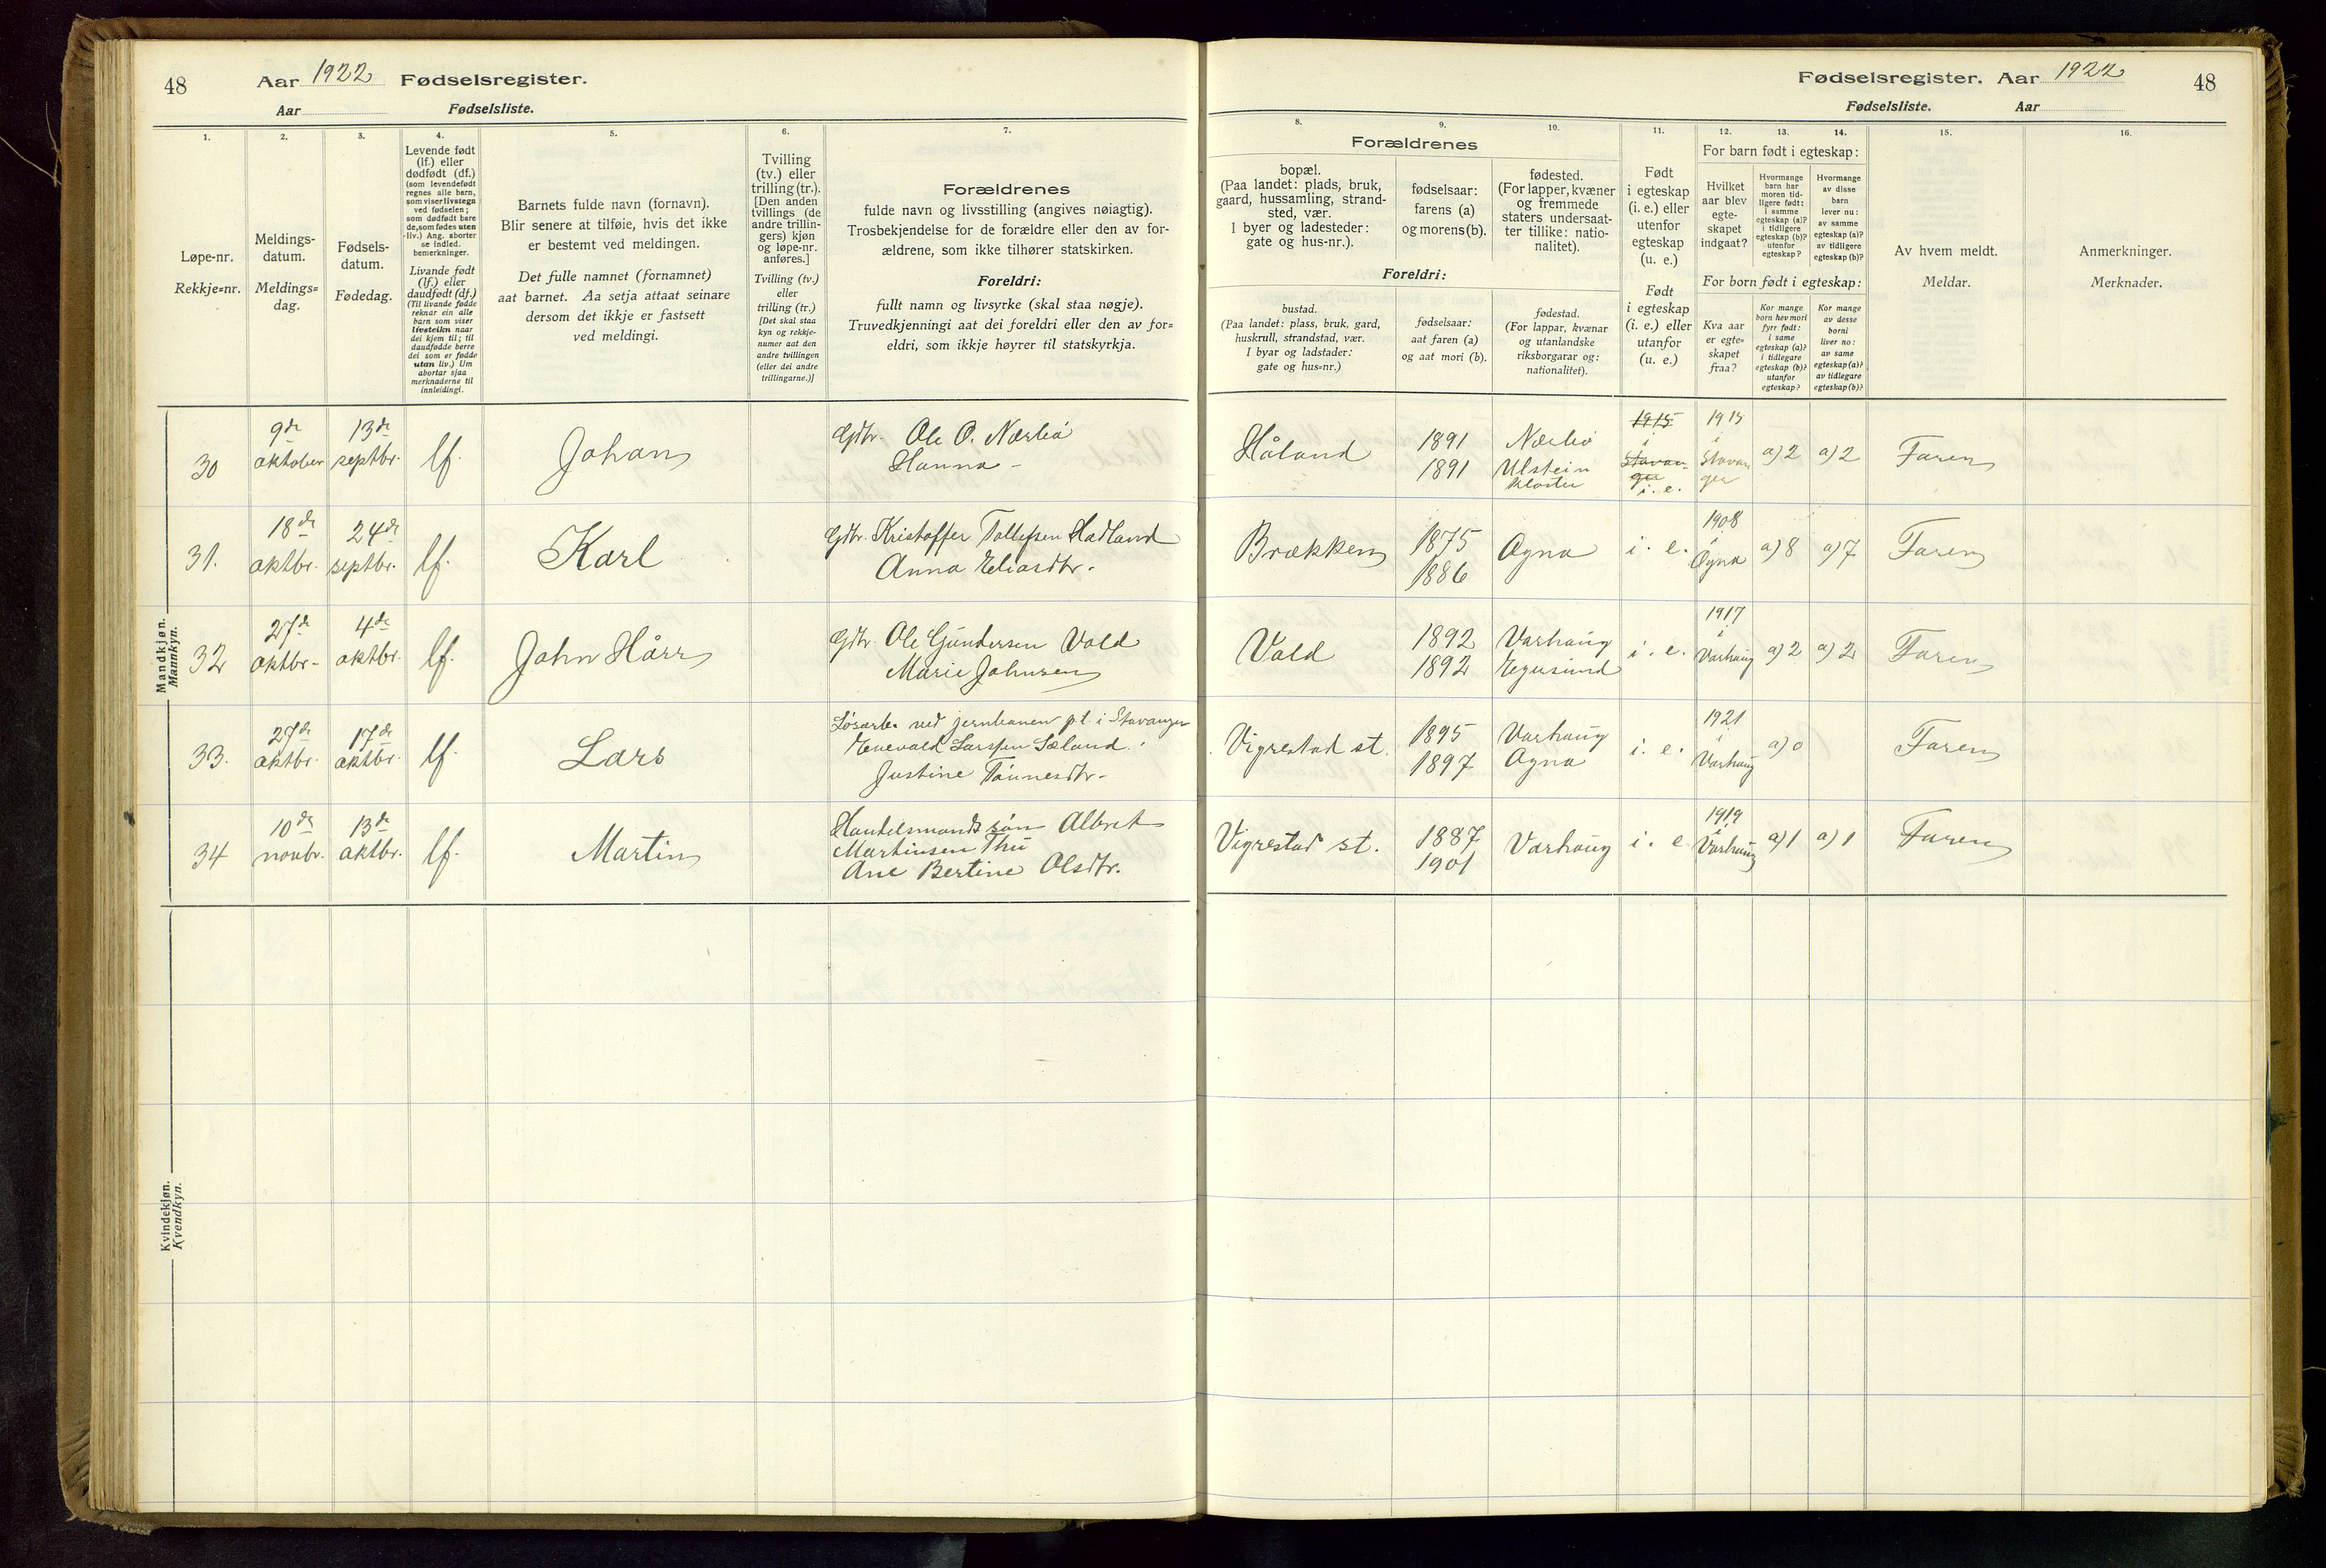 48 Aar 1922 Fødselsregister.
Aar Fødselsliste.
Fødselsregister. Aar 1922 48
Fødselsliste. Aar
1. 2. 3. 4. 5. 6. 7.
Løpe-nr.
Rekkje=nr.
Meldings-
datum.
Meldings=
dag.
Fødsels-
datum.
Fødedag.
Levende født
(lf.) eller
dødfødt (df.)
(som levendefødt
regnes alle barn,
som viser livstegn
ved fødselen;
som dødfødt bare
de, som fødes uten
liv.) Ang. aborter
se indled.
bemerkninger.
Livande født
(lf.) eller
daudfødt (df.)
(Til livande fødde
reknar ein alle
barn som viser
livsteikn naar
dei kjem til; til
daudfødde berre
dei som er fødde
utan liv.) Um
abortar sjaa
merknaderne til
innleidingi.
Barnets fulde navn (fornavn).
Blir senere at tilføie, hvis det ikke
er bestemt ved meldingen.
Det fulle namnet (fornamnet)
aat barnet. Aa setja attaat seinare
dersom det ikkje er fastsett
ved meldingi.
Tvilling
(tv.) eller
trilling (tr.).
[Den anden
tvillings (de
andre trillin-
gers) kjøn
og løpe-nr.
anføres.]
Tvilling (tv.)
eller
trilling (tr.)
[Det skal staa
kyn og rekkje-
numer aat den
andre tvillingen
(eller dei andre
trillingarne.)]
Forældrenes
fulde navn og livsstilling (angives nøiagtig).
Trosbekjendelse for de forældre eller den av for-
ældrene, som ikke tilhører statskirken.
Foreldri:
fullt namn og livsyrke (skal staa nøgje).
Truvedkjenningi aat dei foreldri eller den av for=
eldri, som ikkje høyrer til statskyrkja.
8. 9. 10. 11. 12. 13. 14. 15. 16.
Forældrenes
bopæl.
(Paa landet: plads, bruk,
gaard, hussamling, strand-
sted, vær.
I byer og ladesteder:
gate og hus-nr.).
fødselsaar:
farens (a)
og morens (b).
fødested.
(For lapper, kvæner
og fremmede
staters undersaat-
ter tillike: natio-
nalitet).
Foreldri:
bustad.
(Paa landet: plass, bruk, gard,
huskrull, strandstad, vær.
I byar og ladstader:
gate og hus=nr.)
fødselsaar:
aat faren (a)
og aat mori (b).
fødestad.
(For lappar, kvænar
og utanlandske
riksborgarar og:
nationalitet).
Født
i egteskap
(i. e.) eller
utenfor
egteskap
(u. e.)
Født
i egteskap
(i. e.) eller
utanfor
(u. e.)
For barn født i egteskap:
Hvilket
aar blev
egte-
skapet
indgaat?
Hvormange
barn har
moren tid-
ligere født:
i samme
egteskap (a)?
i tidligere
egteskap (b)?
utenfor
egteskap?
Hvormange
av disse
barn
lever nu:
av samme
egteskap (a)?
av tidligere
egteskap (b)?
For born født i egteskap:
Kva aar
er egte=
skapet
fraa?
Kor mange
born hev mori
fyrr født:
i same
egteskap (a)?
i tidlegare
egteskap (b)?
utanfor
egteskap?
Kor mange
av desse
borni
liver no:
av same
egteskap (a)?
av tidlegare
egteskap (b)?
Av hvem meldt.
Meldar.
Anmerkninger.
Merknader.
Mandkjøn.
Mannkyn.
30 9de oktober 13de septbr. lf. Johan
Gdbr. Ole O. Nærbø
Hanna -
Håland 1891 Nærbø
1891 Ulstein kloster
1915 i Stavanger i. e. 1915 i Stavanger a) 2 a) 2 Faren
31. 18de oktbr. 24de septbr. lf. Karl
Gdbr. Kristoffer Tollefsen Hadland
Anna Eliasdtr.
Brækken 1875 1886 Ogna i. e. 1908 i Ogna a) 8 a) 7 Faren
32 27de oktbr. 4de oktbr. lf. John Hårr
Gdbr. Ole Gundersen Vold
Marie Johnsen
Vold 1892 Varhaug
1892 Egersund
i. e. 1917 i Varhaug a) 2 a) 2 Faren
33. 27de oktbr. 17de oktbr. lf. Lars
Løsarb. ved jernbanen p.t. i Stavanger
Enevald Larssen Sæland.
Justine Tønnesdtr.
Vigrestad st. 1895 Varhaug
1897 Ogna
i. e. 1921 i Varhaug a) 0 Faren
34 10de novbr. 13de oktbr. lf. Martin
Handelsmands søn Albret
Martinsen Thu
Ane Bertine Olsdtr.
Vigrestad st. 1887 1901 Varhaug i. e 1919 i Varhaug a) 1 a) 1 Faren
Kvindekjøn.
Kvendkyn.